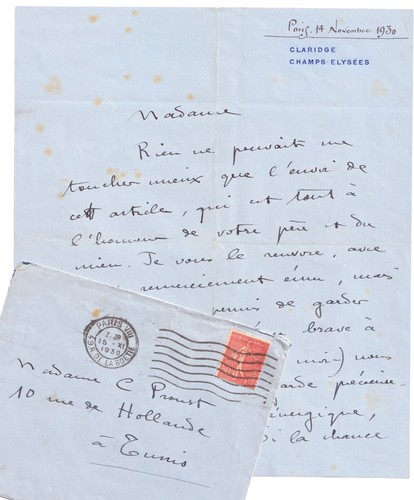 Paris, 14 Novembre 1930
CLARIDGE
CHAMPS-ELYSÉES
Madame
Rien ne pouvait me
toucher mieux que l'envoi de
cet article, qui est tout à
l'honneur de votre père et du
mien. Je vous le renvoie, avec
remerciement ému, mais
permis de garder
brave à
moi) nous
garde précieuse-
énergique,
si la chance
PARIS VIII
15 - XI
1930
R. DE LA BOETIE
Madame C Proust
10 rue de Hollande
à Tunis